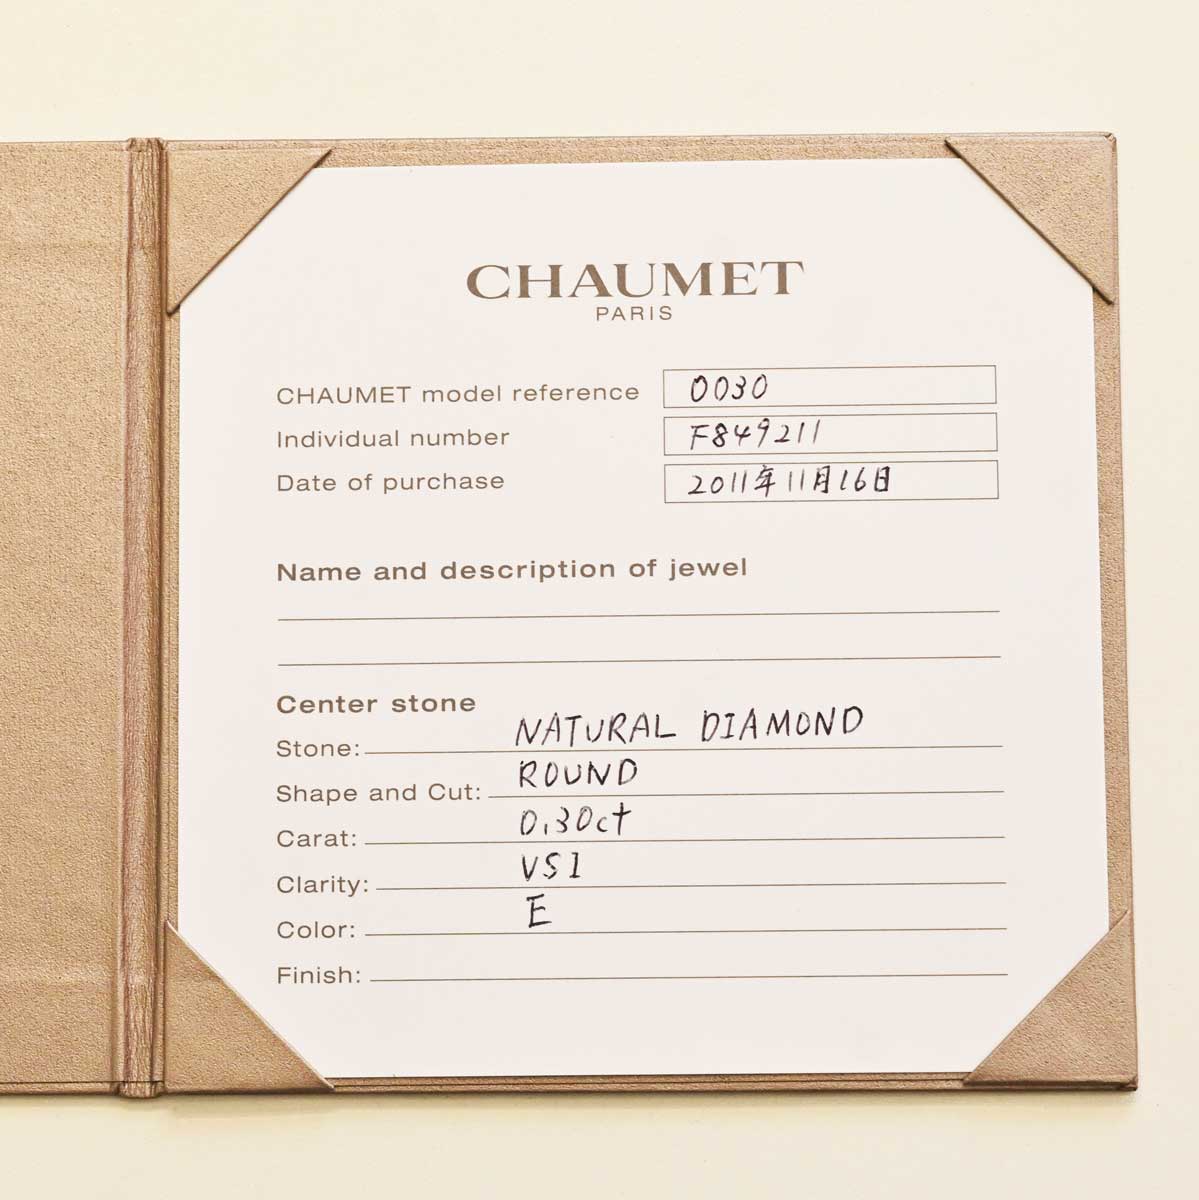 CHAUMET
PARIS
CHAUMET model reference 0030
Individual number F849211
Date of purchase 2011年11月16日
Name and description of jewel
Center stone
Stone: NATURAL DIAMOND
Shape and Cut: ROUND
Carat: 0.30ct
Clarity: VS1
Color: E
Finish: